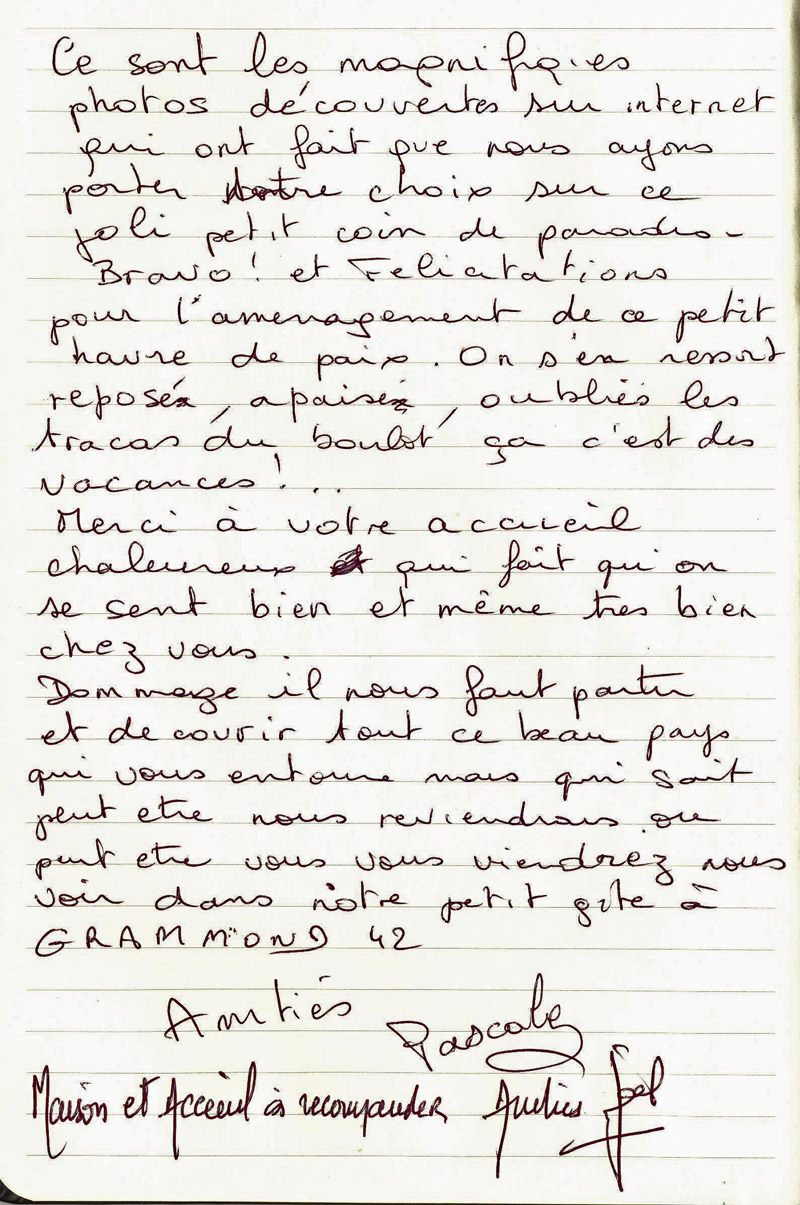 Ce sont les magnifiques
photos découvertes sur internet
qui ont fait que nous ayons
porter notre choix sur ce
joli petit coin de paradis -
Bravo ! et Felicitations
pour l'amenagement de ce petit
havre de paix. On s'en ressort
reposé, apaisé, oubliés les
tracas du boulot ça c'est des
vacances !...
Merci à votre accueil
chaleureux qui fait qu'on
se sent bien et même tres bien
chez vous.
Dommage il nous faut partir
et decouvrir tout ce beau pays
qui vous entoure mais qui sait
peut etre nous reviendrons ou
peut etre vous vous viendrez nous
voir dans notre petit gite à
GRAMMOND 42
Amitiés Pascale
Maison et Acceuil à recommander Amitiés